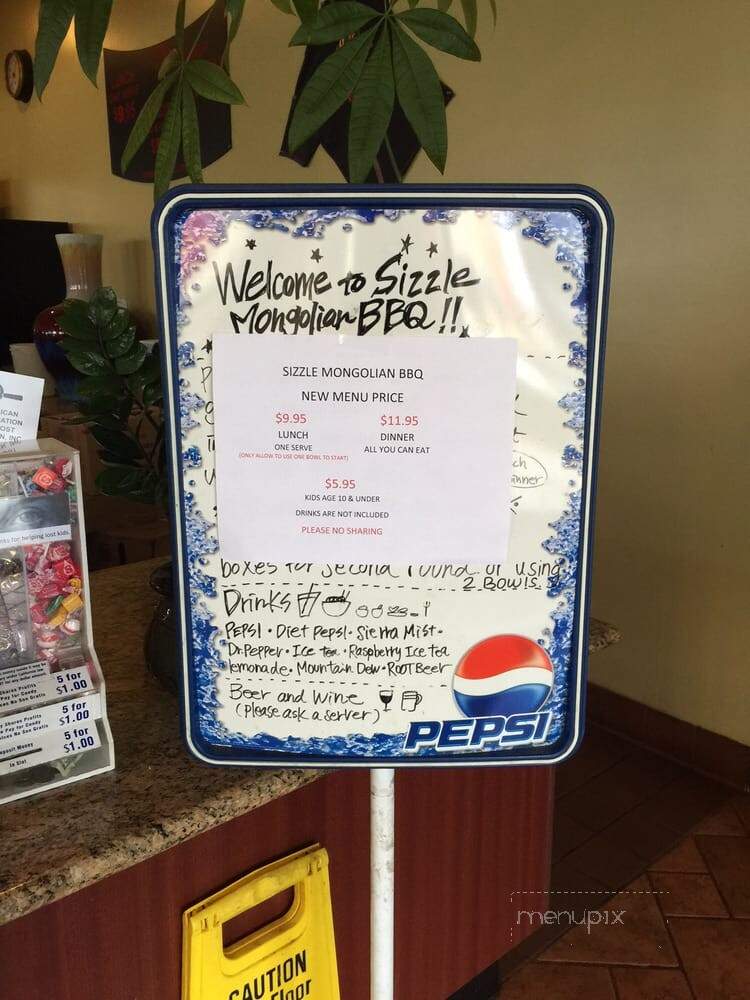 Welcome to Sizzle
Mongolian BBQ!!
SIZZLE MONGOLIAN BBQ
NEW MENU PRICE
$9.95 $11.95
LUNCH DINNER
ONE SERVE ALL YOU CAN EAT
(ONLY ALLOW TO USE ONE BOWL TO START)
$5.95
KIDS AGE 10 & UNDER
DRINKS ARE NOT INCLUDED
PLEASE NO SHARING
boxes for second round of using
2 Bowls.
Drinks
PEPSI • Diet Pepsi • Sierra Mist •
Dr.Pepper • Ice tea • Raspberry Ice tea
lemonade • Mountain Dew • ROOT Beer
Beer and Wine
(please ask a server)
PEPSI
for helping lost kids
5 for
$1.00
5 for
$1.00
5 for
$1.00
In Slot
CAUTION
Floor
menupix